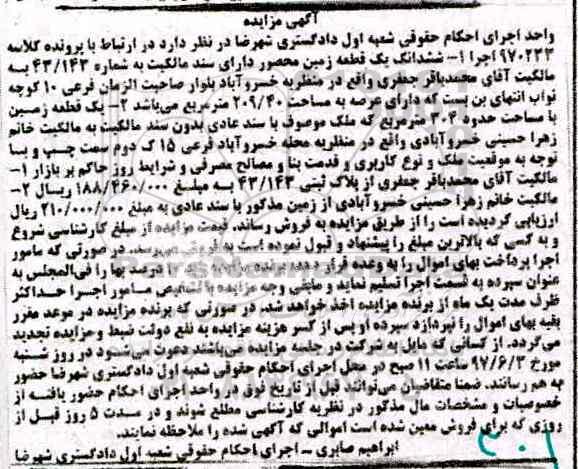 آگهی مزایده
واحد اجرای احکام حقوقی شعبه اول دادگستری شهرضا در نظر دارد در ارتباط با پرونده کلاسه
۹۷۰۲۳۳ اجرا ۱- ششدانگ یک قطعه زمین محصور دارای سند مالکیت به شماره ۴۳/۱۴۳ به
مالکیت آقای محمدباقر جعفری واقع در منظریه خسروآباد بلوار صاحبت الزمان فرعی ۱۰ کوچه
نواب انتهای بن بست که دارای عرصه به مساحت ۲۰۹/۴۰ مترمربع می‌باشد ۲- یک قطعه زمین
با مساحت حدود ۳۰۴ مترمربع که ملک موصوف با سند عادی بدون سند مالکیت به مالکیت خانم
زهرا حسینی خسروآبادی واقع در منظریه محله خسروآباد فرعی ۱۵ ک دوم سمت چپ و با
توجه به موقعیت ملک و نوع کاربری و قدمت بنا و مصالح مصرفی و شرایط روز حاکم بر بازار ۱-
مالکیت آقای محمدباقر جعفری از پلاک ثبتی ۴۳/۱۴۳ به مبلغ ۱۸۸/۴۶۰/۰۰۰ ریال ۲-
مالکیت خانم زهرا حسینی خسروآبادی از زمین مذکور با سند عادی به مبلغ ۲۱۰/۰۰۰/۰۰۰ ریال
ارزیابی گردیده است را از طریق مزایده به فروش رساند. قیمت مزایده از مبلغ کارشناسی شروع
و به کسی که بالاترین مبلغ را پیشنهاد و قبول نموده است به فروش می‌رسد. در صورتی که مامور
اجرا پرداخت بهای اموال را به وعده قرار دهد برنده مزایده باید ۱۰ درصد بها را فی‌المجلس به
عنوان سپرده به قسمت اجرا تسلیم نماید و مابقی وجه مزایده با تشخیص مامور اجرا حداکثر
ظرف مدت یک ماه از برنده مزایده اخذ خواهد شد. در صورتی که برنده مزایده در موعد مقرر
بقیه بهای اموال را نپردازد سپرده او پس از کسر هزینه مزایده به نفع دولت ضبط و مزایده تجدید
می‌گردد. از کسانی که مایل به شرکت در جلسه مزایده می‌باشند دعوت می‌شود در روز شنبه
مورخ ۹۷/۶/۳ ساعت ۱۱ صبح در محل اجرای احکام حقوقی شعبه اول دادگستری شهرضا حضور
به هم رسانند. ضمنا متقاضیان می‌توانند قبل از تاریخ فوق در واحد اجرای احکام حضور یافته از
خصوصیات و مشخصات مال مذکور در نظریه کارشناسی مطلع شوند و در مدت ۵ روز قبل از
روزی که برای فروش معین شده است اموالی که آگهی شده را ملاحظه نمایند.
ابراهیم صابری - اجرای احکام حقوقی شعبه اول دادگستری شهرضا